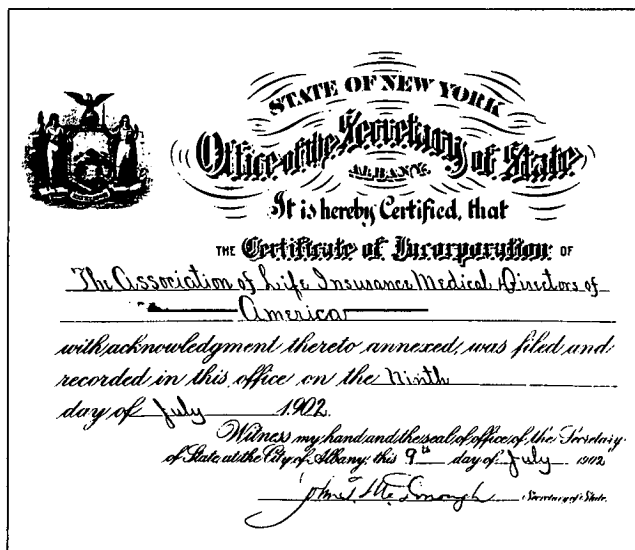 STATE OF NEW YORK
Office of the Secretary of State
ALBANY.
It is hereby Certified, that
THE Certificate of Incorporation OF
The Association of Life Insurance Medical Directors of
America
with acknowledgment thereto annexed, was filed and
recorded in this office on the Ninth
day of July 1902.
Witness my hand and the seal of office of the Secretary
of State, at the City of Albany, this 9th day of July 1902
John T. McDonough Secretary of State.